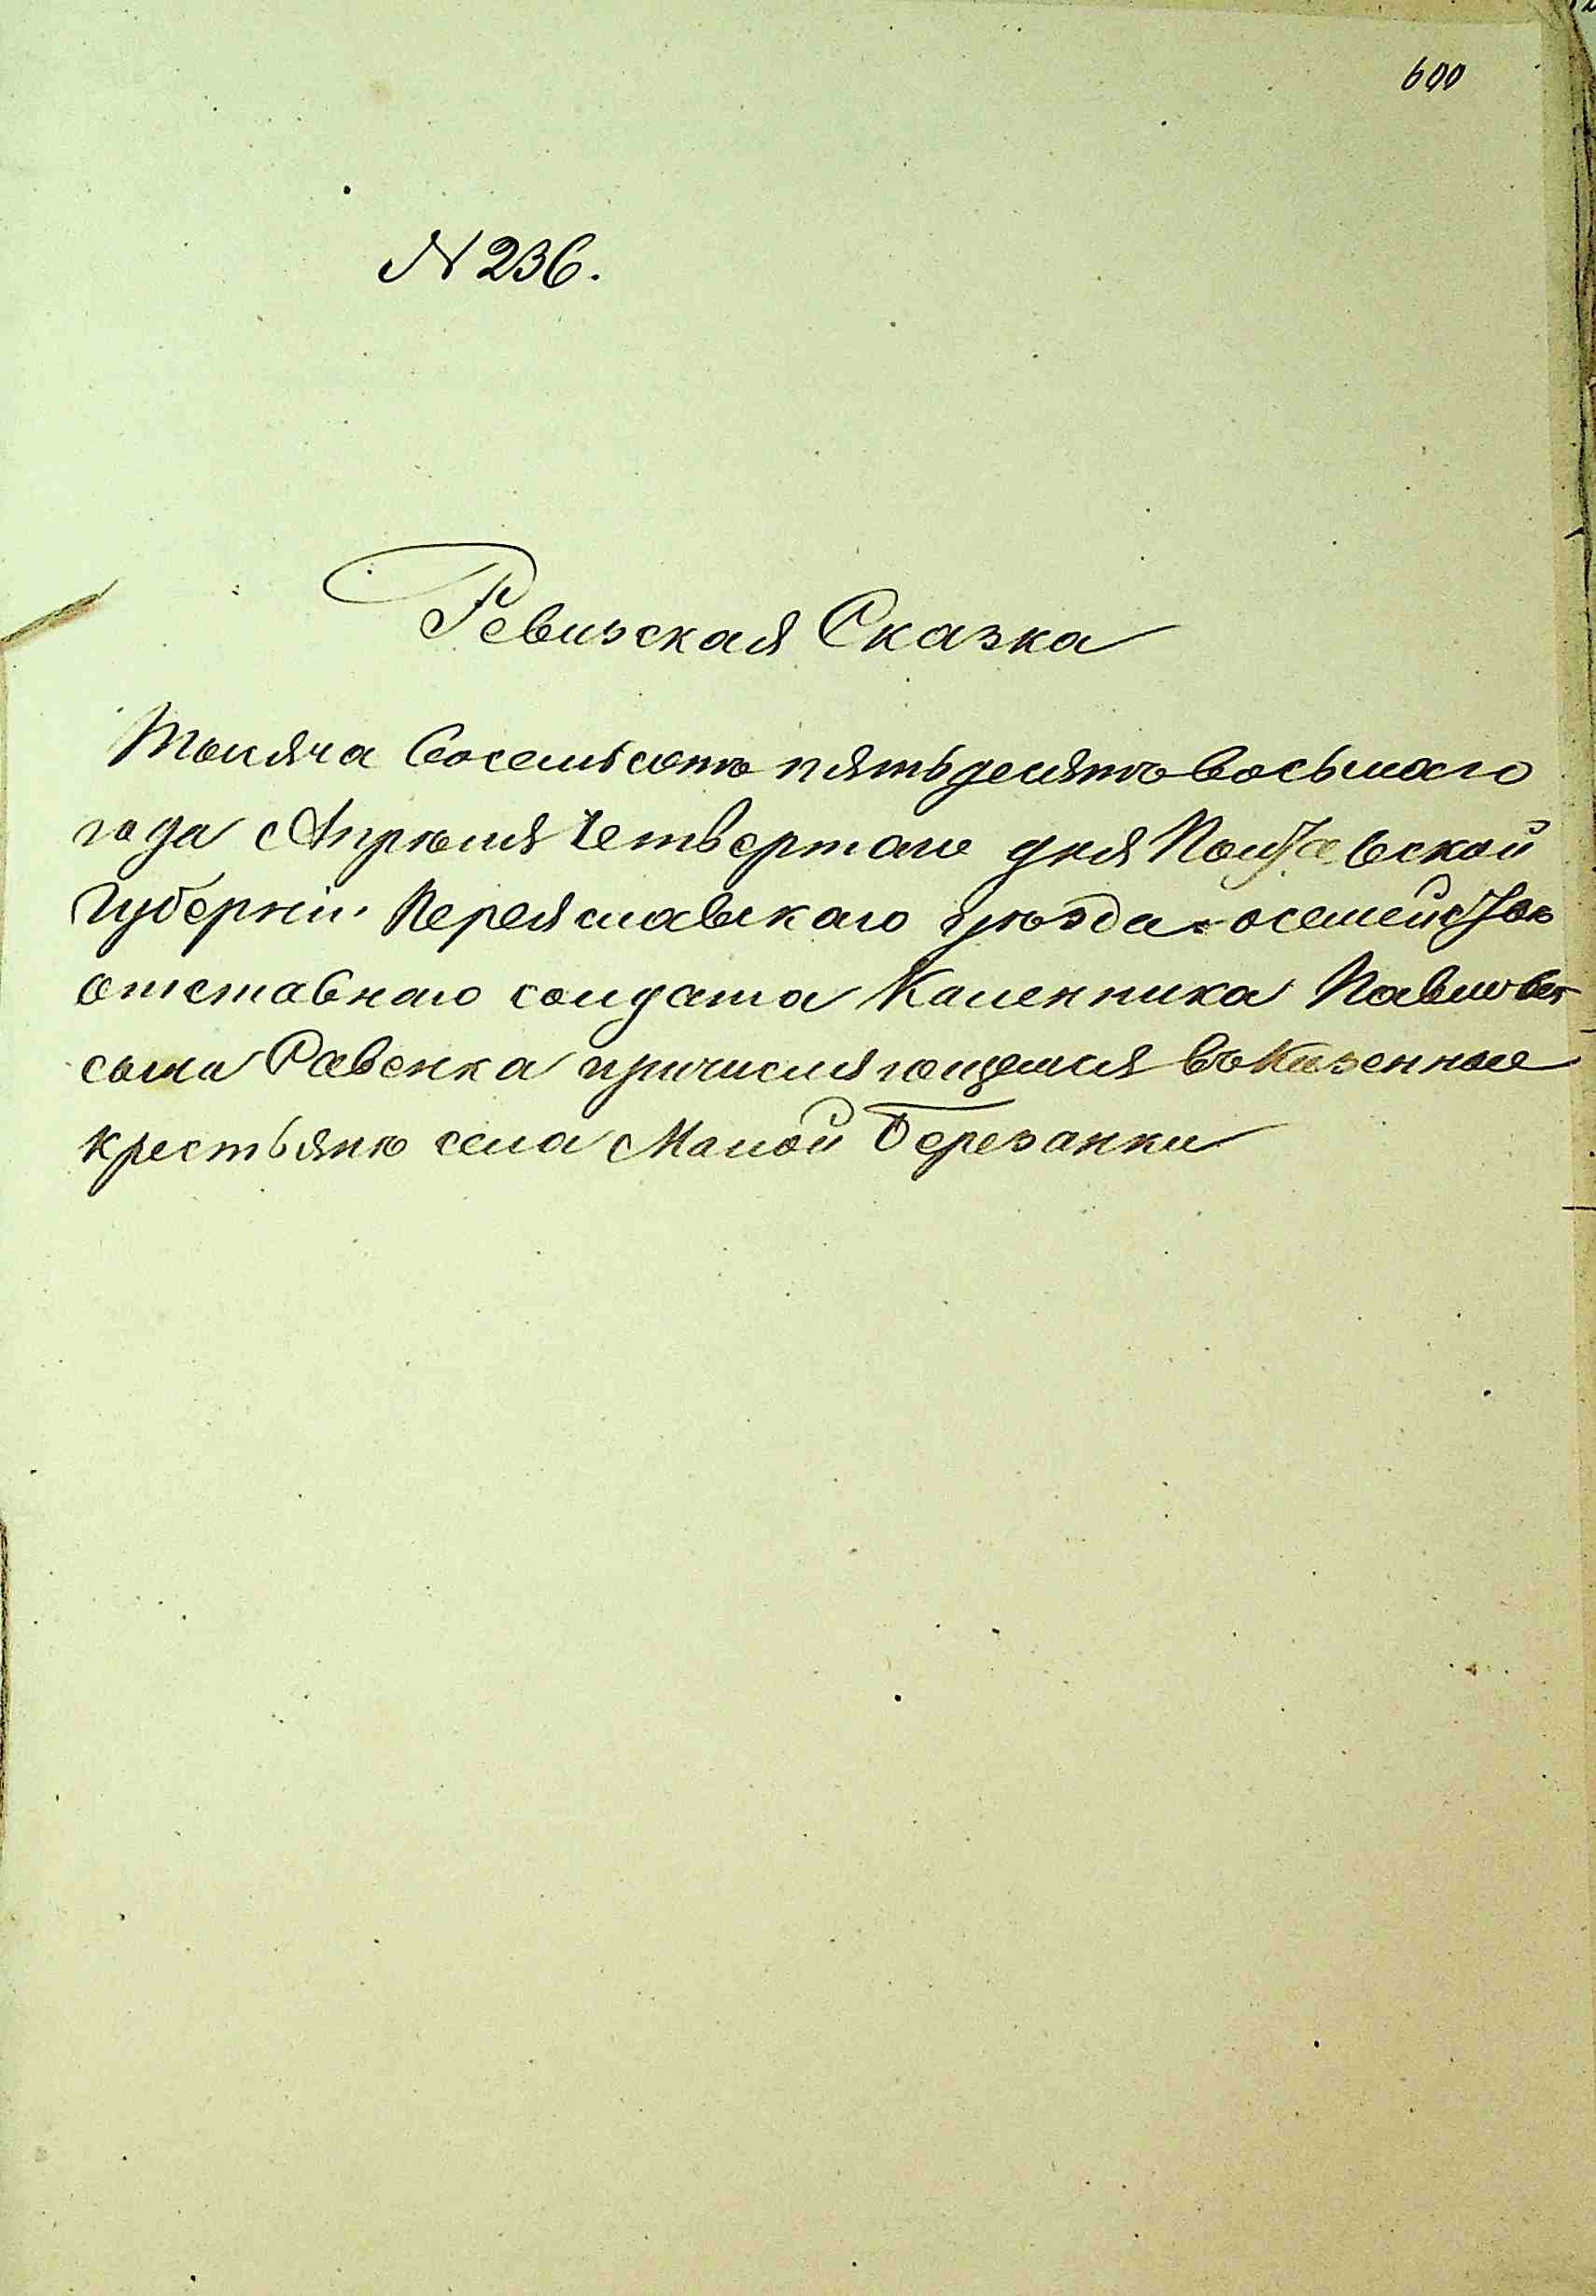 600
№ 236.
Ревизская Сказка
Тысяча восемьсотъ пятьдесятъ восьмаго
года Апрѣля Четвертаго дня Полтавской
Губерніи Переяславскаго уѣзда осемействѣ
отставнаго солдата Каленника Павлова
сына Равенка причисляющемся въ Казенные
крестьянѣ села Малой Березанки